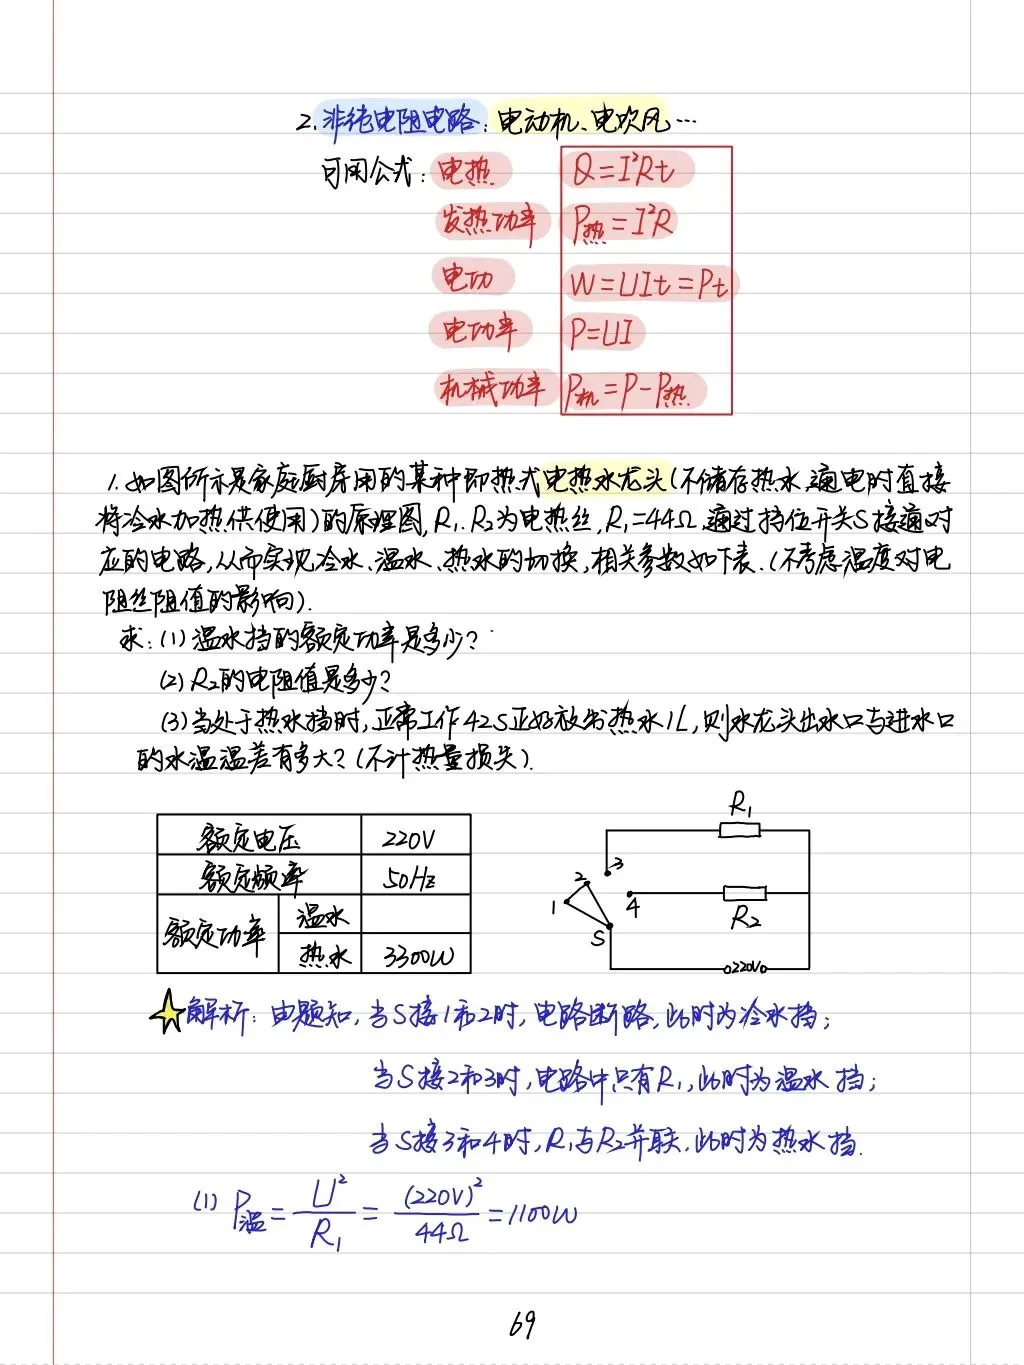 2. 非纯电阻电路：电动机、电吹风…
可用公式：电热 Q=I²Rt
发热功率 P热=I²R
电功 W=UIt=Pt
电功率 P=UI
机械功率 P机=P-P热.
1. 如图所示是家庭厨房用的某种即热式电热水龙头(不储存热水,通电时直接
将冷水加热供使用)的原理图, R₁、R₂为电热丝, R₁=44Ω, 通过挡位开关S接通对
应的电路, 从而实现冷水、温水、热水的切换, 相关参数如下表.(不考虑温度对电
阻丝阻值的影响).
求:(1) 温水挡的额定功率是多少?
(2) R₂的电阻值是多少?
(3) 当处于热水挡时, 正常工作42S正好放出热水1L, 则水龙头出水口与进水口
的水温温差有多大?(不计热量损失).
额定电压 220V
额定频率 50Hz
额定功率 温水
热水 3300W
R₁
3
2
1
4
S
R₂
220V
解析: 由题知, 当S接1和2时, 电路断路, 此时为冷水挡;
当S接2和3时, 电路中只有R₁, 此时为温水挡;
当S接3和4时, R₁与R₂并联, 此时为热水挡.
(1) P温=U²/R₁=(220V)²/44Ω=1100W
69